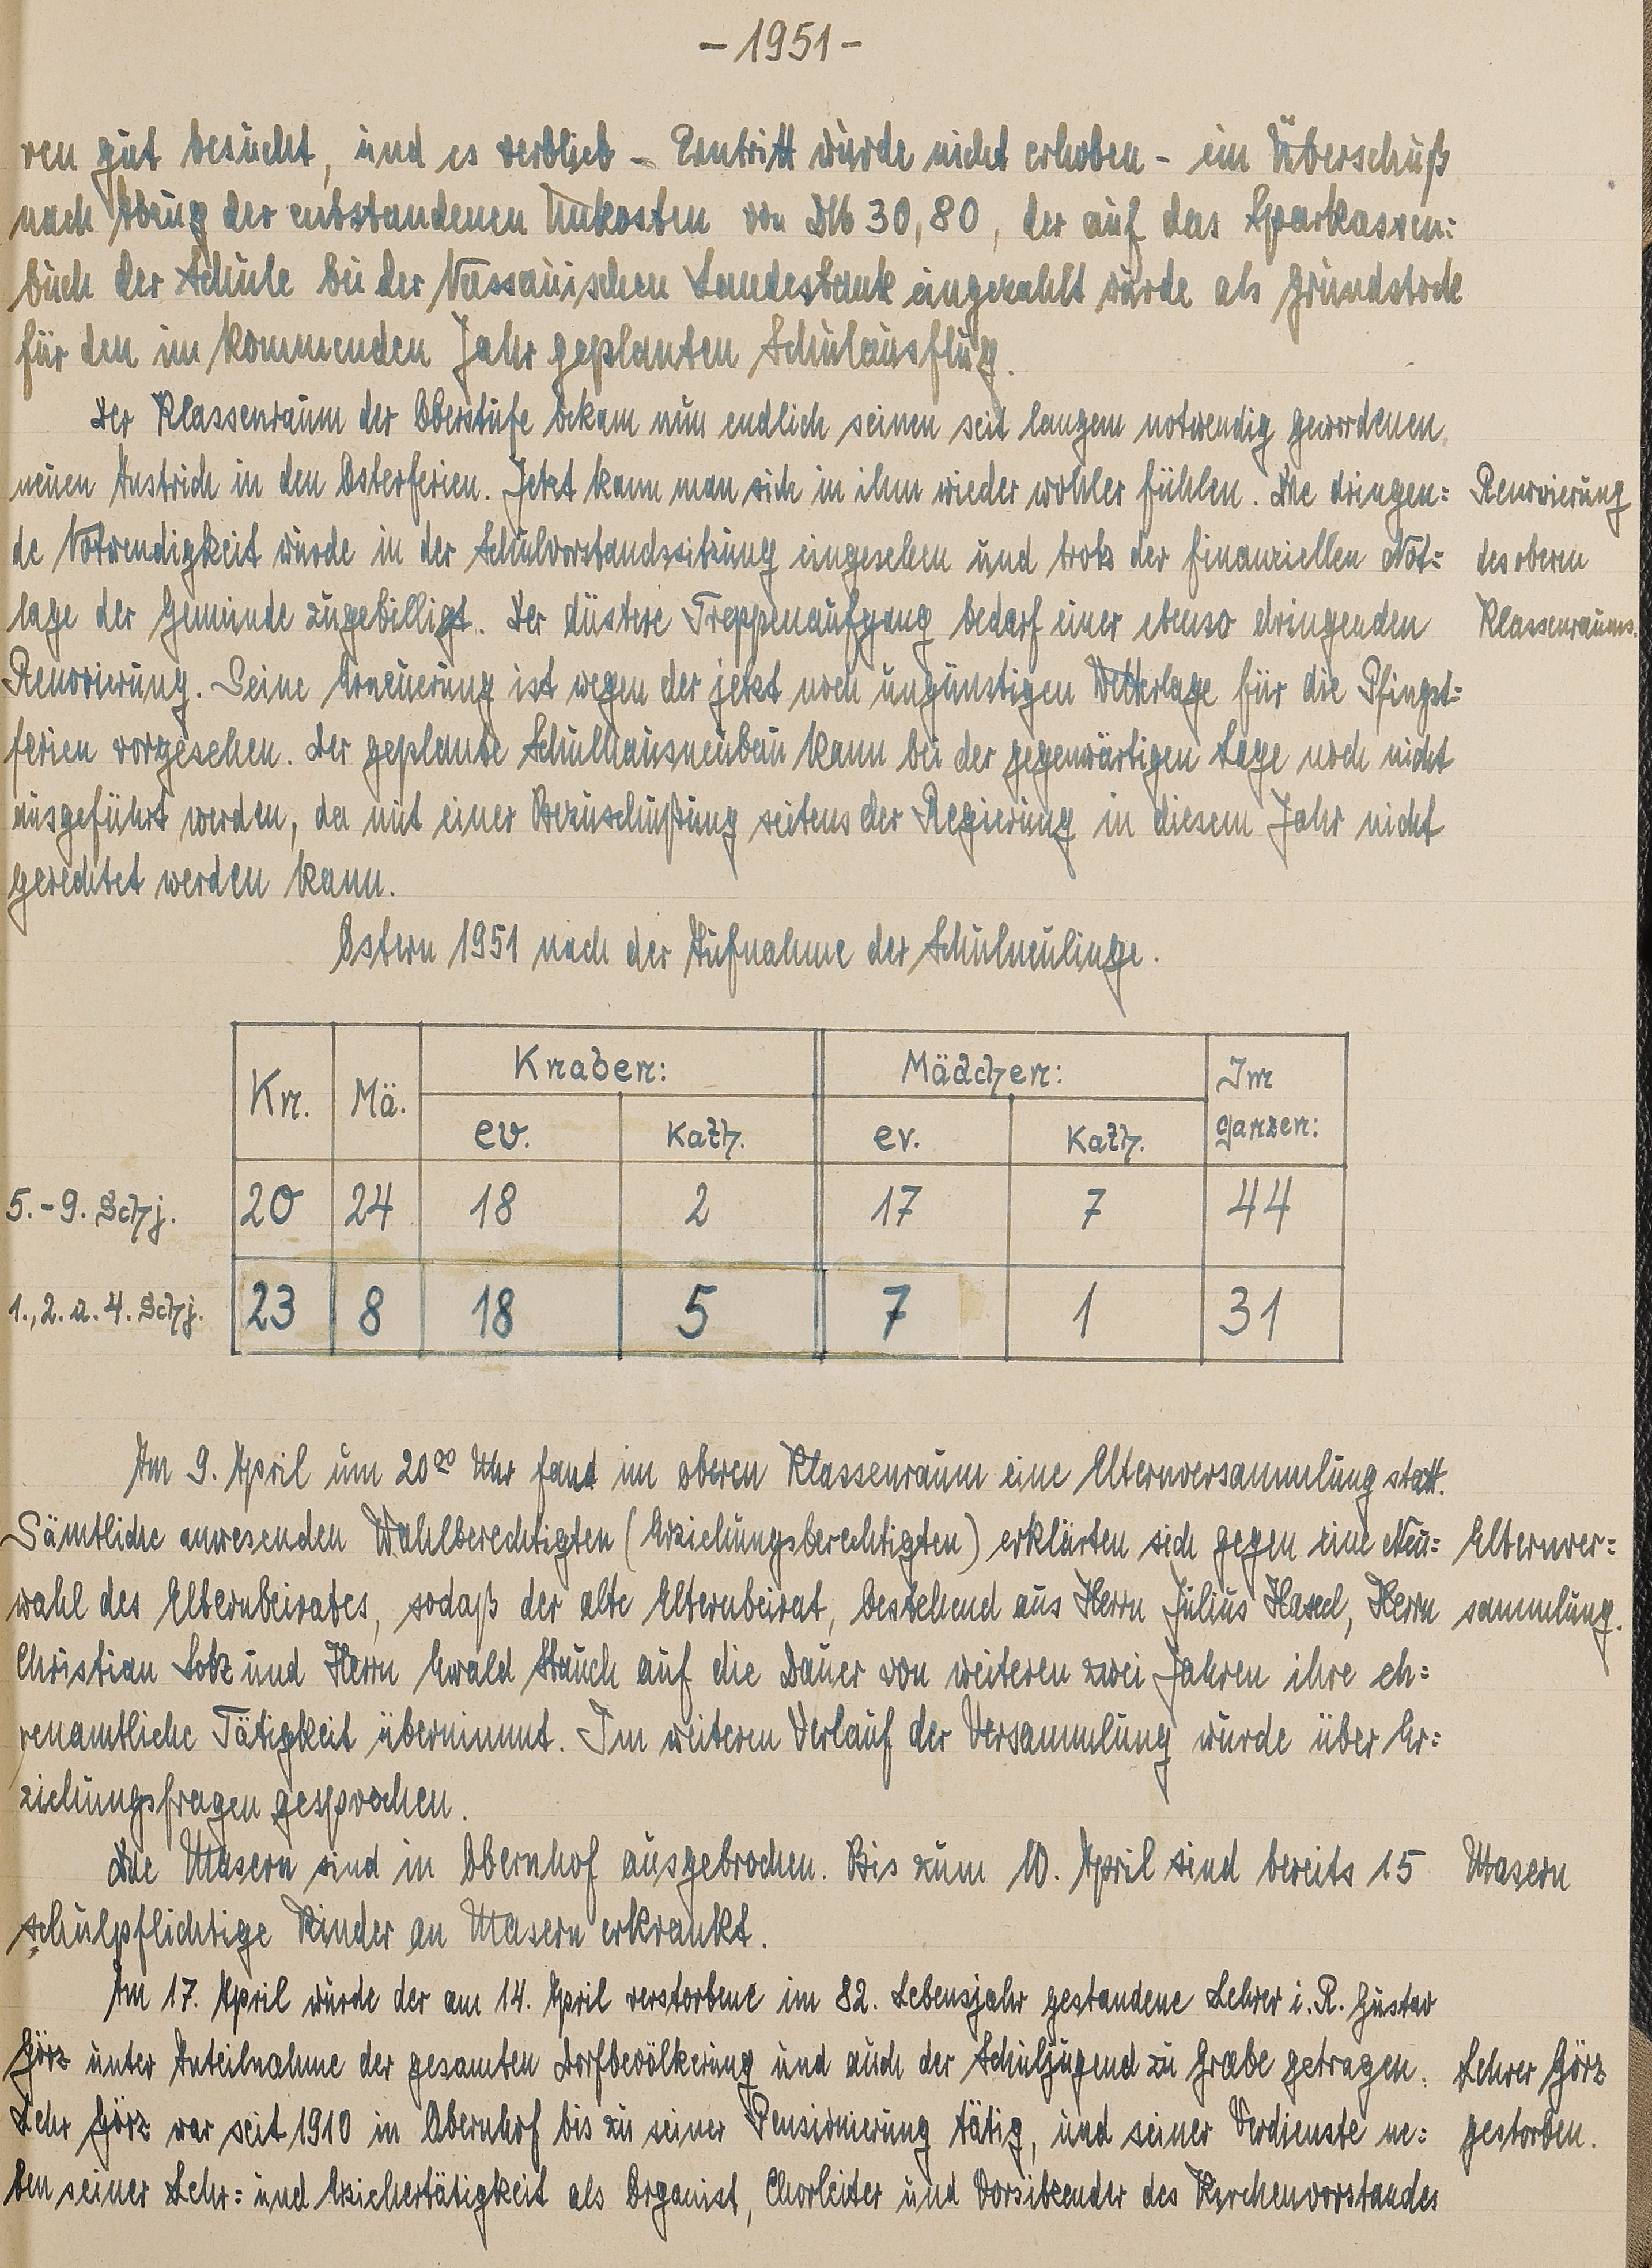 - 1951 -
ren gut besucht, und es verblieb - Eintritt wurde nicht erhoben - ein Überschuß
nach Abzug der entstandenen Unkosten von DM 30,80, der auf das Sparkassen=
buch der Schule bei der Nassauischen Landesbank eingezahlt wurde als Grundstock
für den im kommenden Jahr geplanten Schulausflug.
Der Klassenraum der Oberstufe bekam nun endlich seinen seit langem notwendig gewordenen
neuen Anstrich in den Osterferien. Jetzt kann man sich in ihm wieder wohler fühlen. Die dringen=
Renovierung
de Notwendigkeit wurde in der Schulvorstandssitzung eingesehen und trotz der finanziellen Not=
des oberen
lage der Gemeinde zugebilligt. Der düstere Treppenaufgang bedarf einer ebenso dringenden
Klassenraums.
Renovierung. Seine Erneuerung ist wegen der jetzt noch ungünstigen Wetterlage für die Pfingst=
ferien vorgesehen. Der geplante Schulhausneubau kann bei der gegenwärtigen Lage noch nicht
ausgeführt werden, da mit einer Bezuschußung seitens der Regierung in diesem Jahr nicht
gerechtet werden kann.
Ostern 1951 nach der Aufnahme der Schulneulinge.
Kn. Mä. Knaben: Mädchen: Im
ganzen:
ev. Kath. ev. Kath.
5.-9. Schj. 20 24 18 2 17 7 44
1., 2. u. 4. Schj. 23 8 18 5 7 1 31
Am 9. April um 20⁰⁰ Uhr fand im oberen Klassenraum eine Elternversammlung statt.
Sämtliche anwesenden Wahlberechtigten (Erziehungsberechtigten) erklärten sich gegen eine Neu=
Elternver=
wahl des Elternbeirates, sodaß der alte Elternbeirat, bestehend aus Herrn Julius Hasel, Herrn
sammlung.
Christian Lotz und Herrn Ewald Stauch auf die Dauer von weiteren zwei Jahren ihre eh=
renamtliche Tätigkeit übernimmt. Im weiteren Verlauf der Versammlung wurde über Er=
ziehungsfragen gesprochen.
Die Masern sind in Obernhof ausgebrochen. Bis zum 10. April sind bereits 15
Masern
schulpflichtige Kinder an Masern erkrankt.
Am 17. April wurde der am 14. April verstorbene im 82. Lebensjahr gestandene Lehrer i. R. Gustav
Görz unter Anteilnahme der gesamten Dorfbevölkerung und auch der Schuljugend zu Grabe getragen.
Lehrer Görz
Lehr Görz war seit 1910 in Obernhof bis zu seiner Pensionierung tätig, und seiner Verdienste ne=
gestorben.
ben seiner Lehr= und Erziehertätigkeit als Organist, Chorleiter und Vorsitzender des Kirchenvorstandes